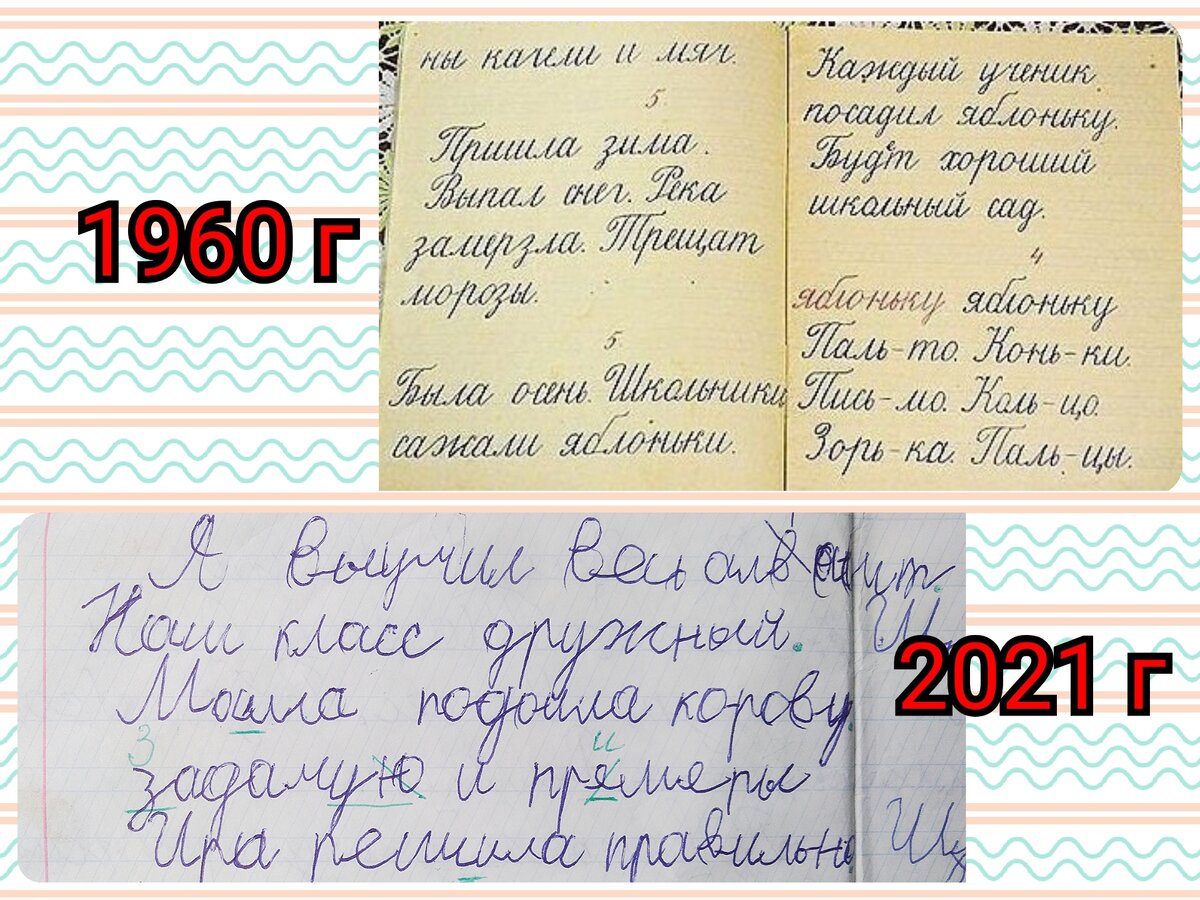 1960 г
ны качели и мяч.
5
Пришла зима.
Выпал снег. Река
замерзла. Трещат
морозы.
5
Была осень. Школьники
сажали яблоньки.
Каждый ученик
посадил яблоньку.
Будет хороший
школьный сад.
4
яблоньку яблоньку
Паль-то. Конь-ки.
Пись-мо. Коль-цо.
Зорь-ка. Паль-цы.
Я выучил весь
Наш класс дружный.
подоила корову
З и
и
Ира решила правильн
2021 г